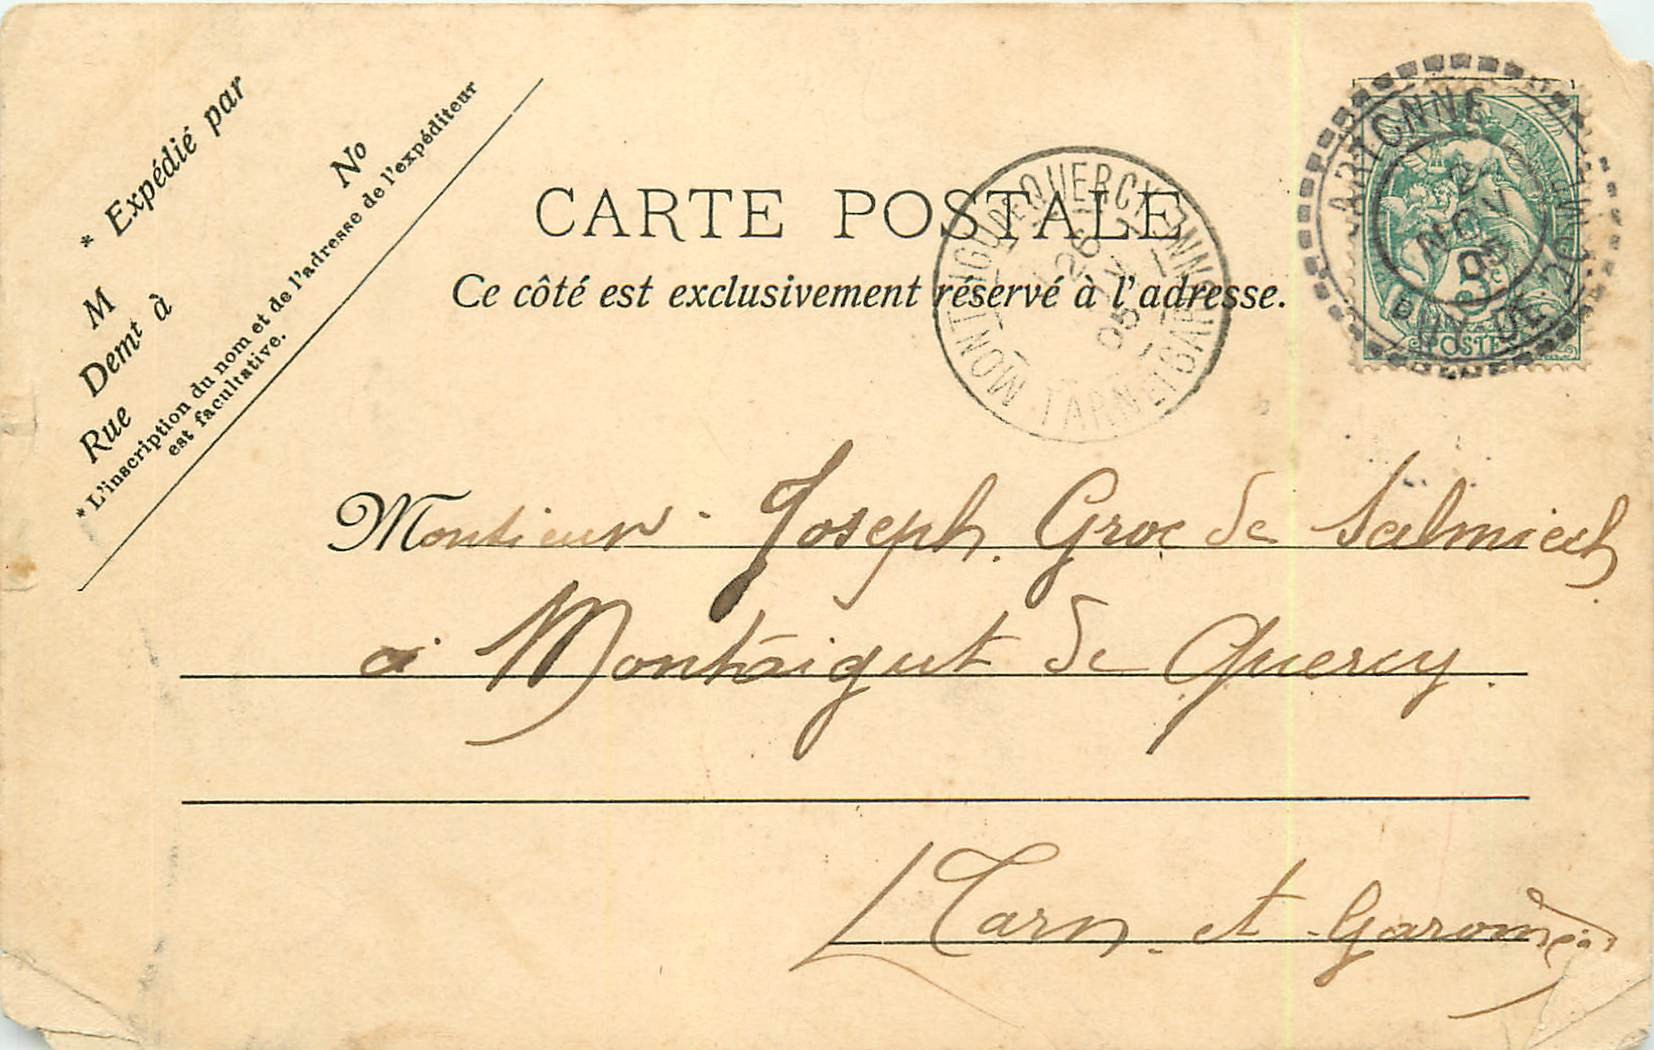 * Expédié par
M
Demt à
Rue No
* L'inscription du nom et de l'adresse de l'expéditeur
est facultative.
CARTE POSTALE
Ce côté est exclusivement réservé à l'adresse.
MONTAIGU-DE-QUERCY
26
05
TARN-ET-GARONNE
ARTONNE
NOV
05
PUY-DE-DOME
POSTES
Monsieur Joseph Groc de Salmiech
à Montaigut de Quercy.
Tarn et Garonne